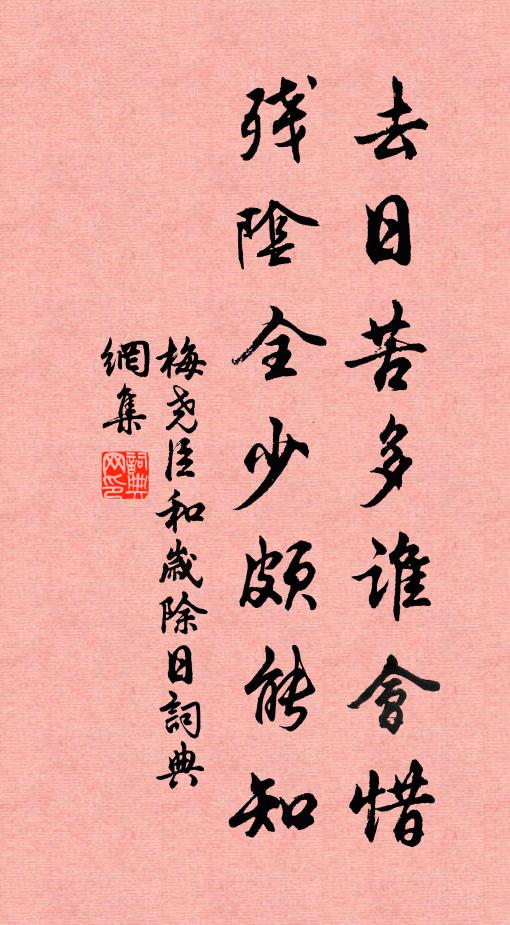 去日苦多誰會惜
残陰全少頗能知
梅尧臣和歲除日詞典
網集
詞典網印